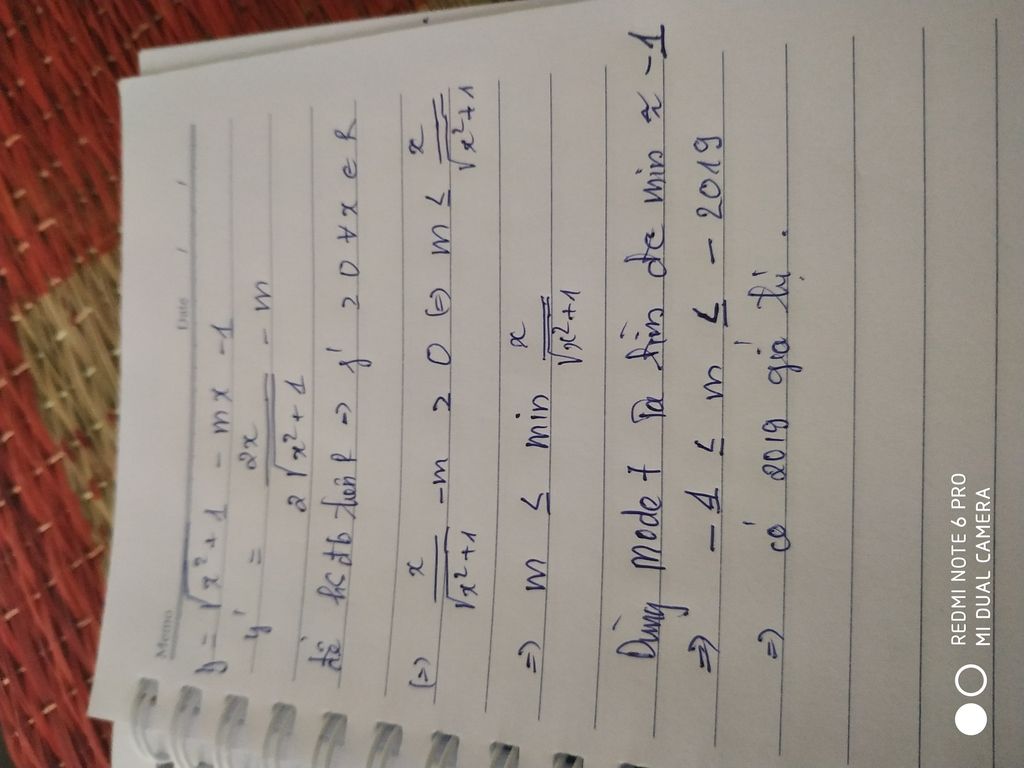 Memo
Date / /
y = √x²+1 - mx - 1
y' = 2x / 2√x²+1 - m
để hs đb trên R => y' ≥ 0 ∀ x ∈ R
(=> x / √x²+1 - m ≥ 0 (=) m ≤ x / √x²+1
=> m ≤ min x / √x²+1
Dùng mode 7 ta tìm đc min ≈ -1
=> -1 ≤ m ≤ - 2019
=> có 2019 giá trị.
REDMI NOTE 6 PRO
MI DUAL CAMERA